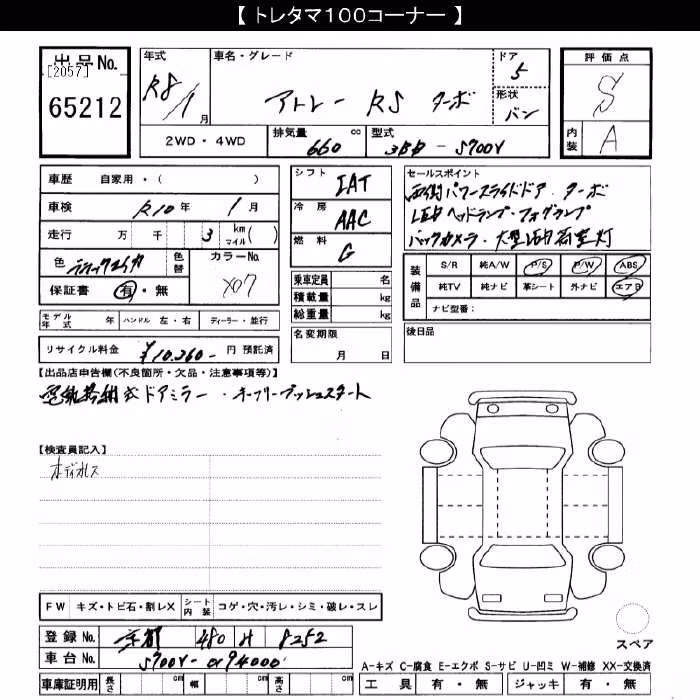 【 トレタマ１００コーナー 】
出品No. 年式 車名・グレード ドア 評価点
[2057] R8/1月 アトレー RS ターボ 5 S
65212 形状 バン
2WD・4WD 排気量 660 cc 型式 3BD-S700V 内装 A
車歴 自家用・( ) シフト IAT セールスポイント
車検 R10年 1月 冷房 AAC 両側パワースライドドア・ターボ
走行 万 千 3 km マイル( ) 燃料 G LEDヘッドランプ・フォグランプ
色 色替 カラーNo. X07 バックカメラ・大型LED荷室灯
保証書 有・無 乗車定員 名 装備品 S/R 純A/W P/S P/W ABS
積載量 kg 純TV 純ナビ 革シート 外ナビ エアB
総重量 kg ナビ型番:
モデル年式 年 ハンドル 左・右 ディーラー・並行 名変期限 月 日 後日品
リサイクル料金 ¥10,260- 円 預託済
【出品店申告欄(不良箇所・欠品・注意事項等)】
電動格納式ドアミラー・キーフリープッシュスタート
【検査員記入】
ボディガレス
FW キズ・トビ石・割レX シート内装 コゲ・穴・汚レ・シミ・破レ・スレ
登録No. 京都 480 8252
車台No. S700V-0194000
スペア
A-キズ C-腐食 E-エクボ S-サビ U-凹ミ W-補修 XX-交換済
車庫証明用 長さ cm 幅 cm 高さ cm 工具 有・無 ジャッキ 有・無